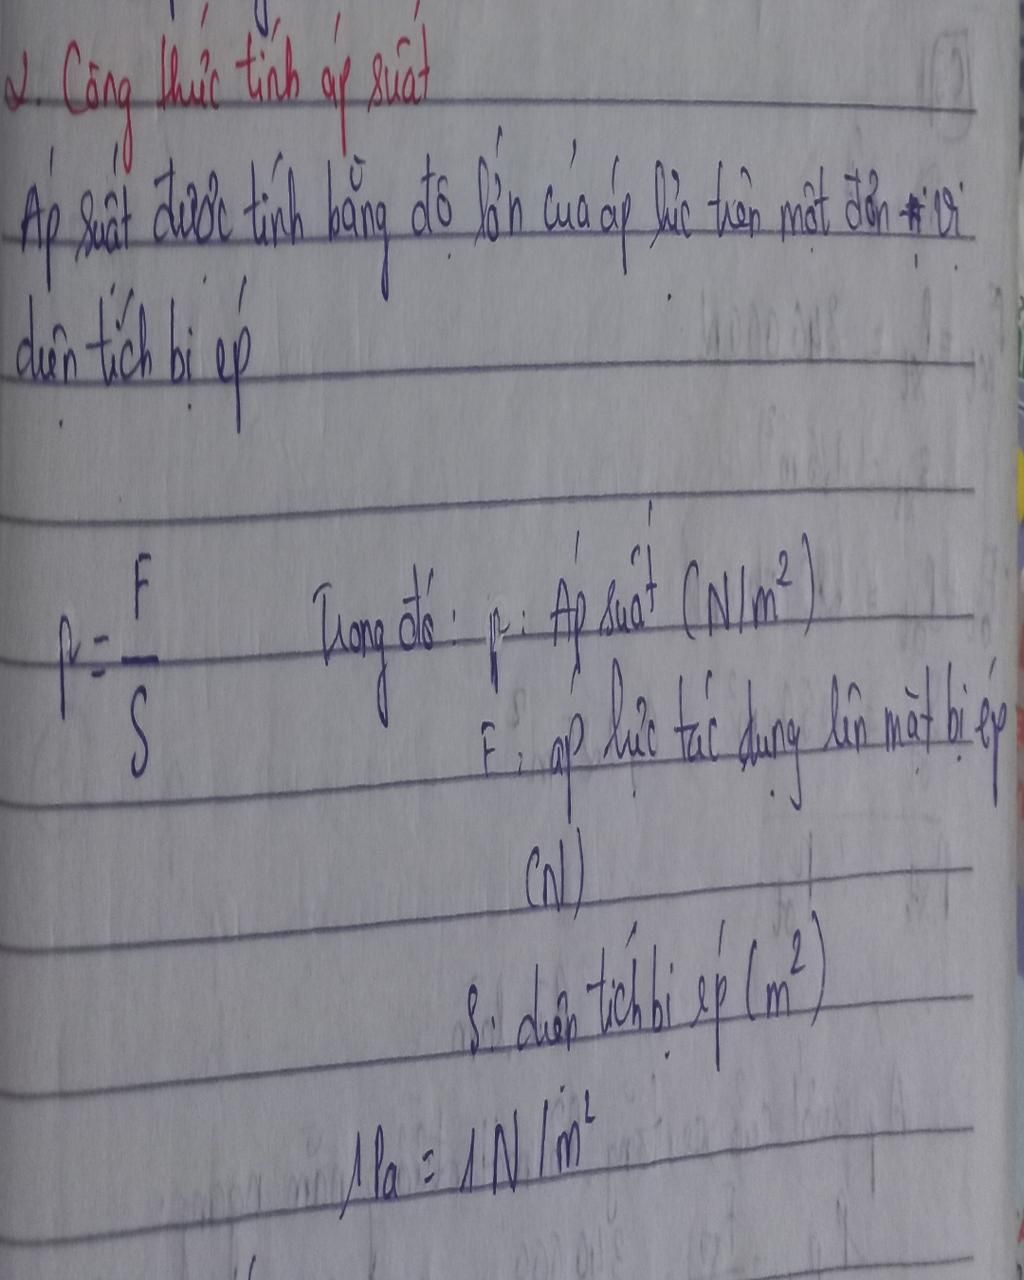 2. Công thức tính áp suất
Áp suất được tính bằng độ lớn của áp lực trên một đơn vị
diện tích bị ép
p = F/S Trong đó: p: Áp suất (N/m²)
F: áp lực tác dụng lên mặt bị ép
(N)
S: diện tích bị ép (m²)
1Pa = 1N/m²